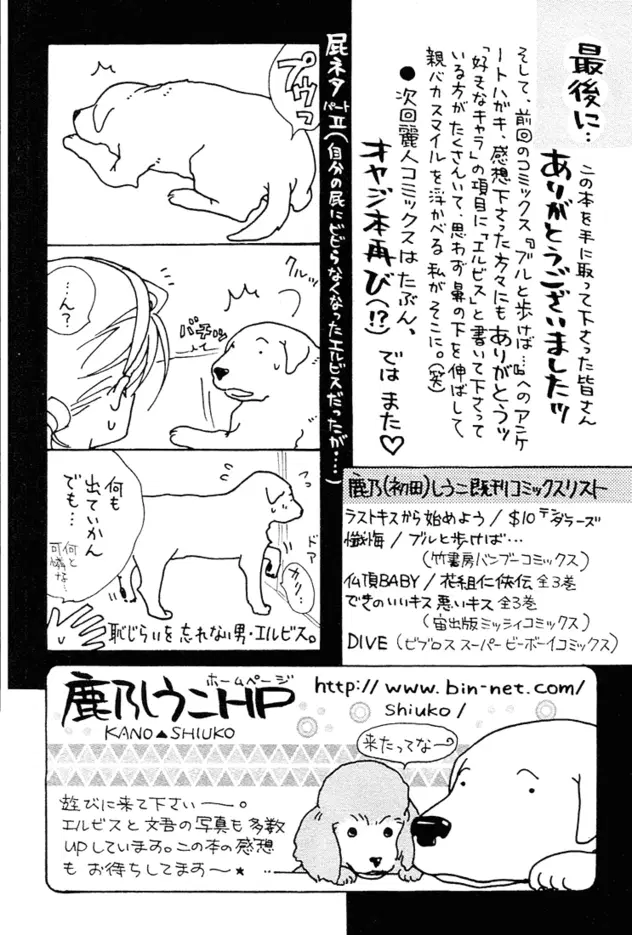 最後に…
この本を手に取って下さった皆さん
ありがとうございましたッッ
そして、前回のコミックス『ブルと歩けば…』へのアンケ
ートハガキ、感想下さった方々にもありがとうッ
「好きなキャラ」の項目に「エルビス」と書いて下さって
いる方がたくさんいて、思わず鼻の下を伸ばして、
親バカスマイルを浮かべる私がそこに。(笑)
●次回麗人コミックスはたぶん、
オヤジ本再び(!?)
ではまた♡
屁ネタパートII(自分の屁にビビらなくなったエルビスだったが…。)
プゥッ
クルッ
バチッ
…ん?
何も
出ていかん
でも…
何と
可憐な…
ドア
カリ…
恥じらいを忘れない男・エルビス。
鹿乃(初田)しうこ既刊コミックスリスト
ラストキスから始めよう/$10テンダラーズ
懺悔/ブルと歩けば…
(竹書房バンブーコミックス)
仏頂BABY/花組仁侠伝 全3巻
できのいいキス悪いキス 全3巻
(宙出版ミッシィコミックス)
DIVE(ビブロススーパービーボーイコミックス)
ホームページ
鹿乃しうこHP
KANO▲SHIUKO
http://www.bin-net.com/
shiuko/
来たってな〜
遊びに来て下さい――。
エルビスと文吾の写真も多数
UPしています。この本の感想
も お待ちしてます〜★